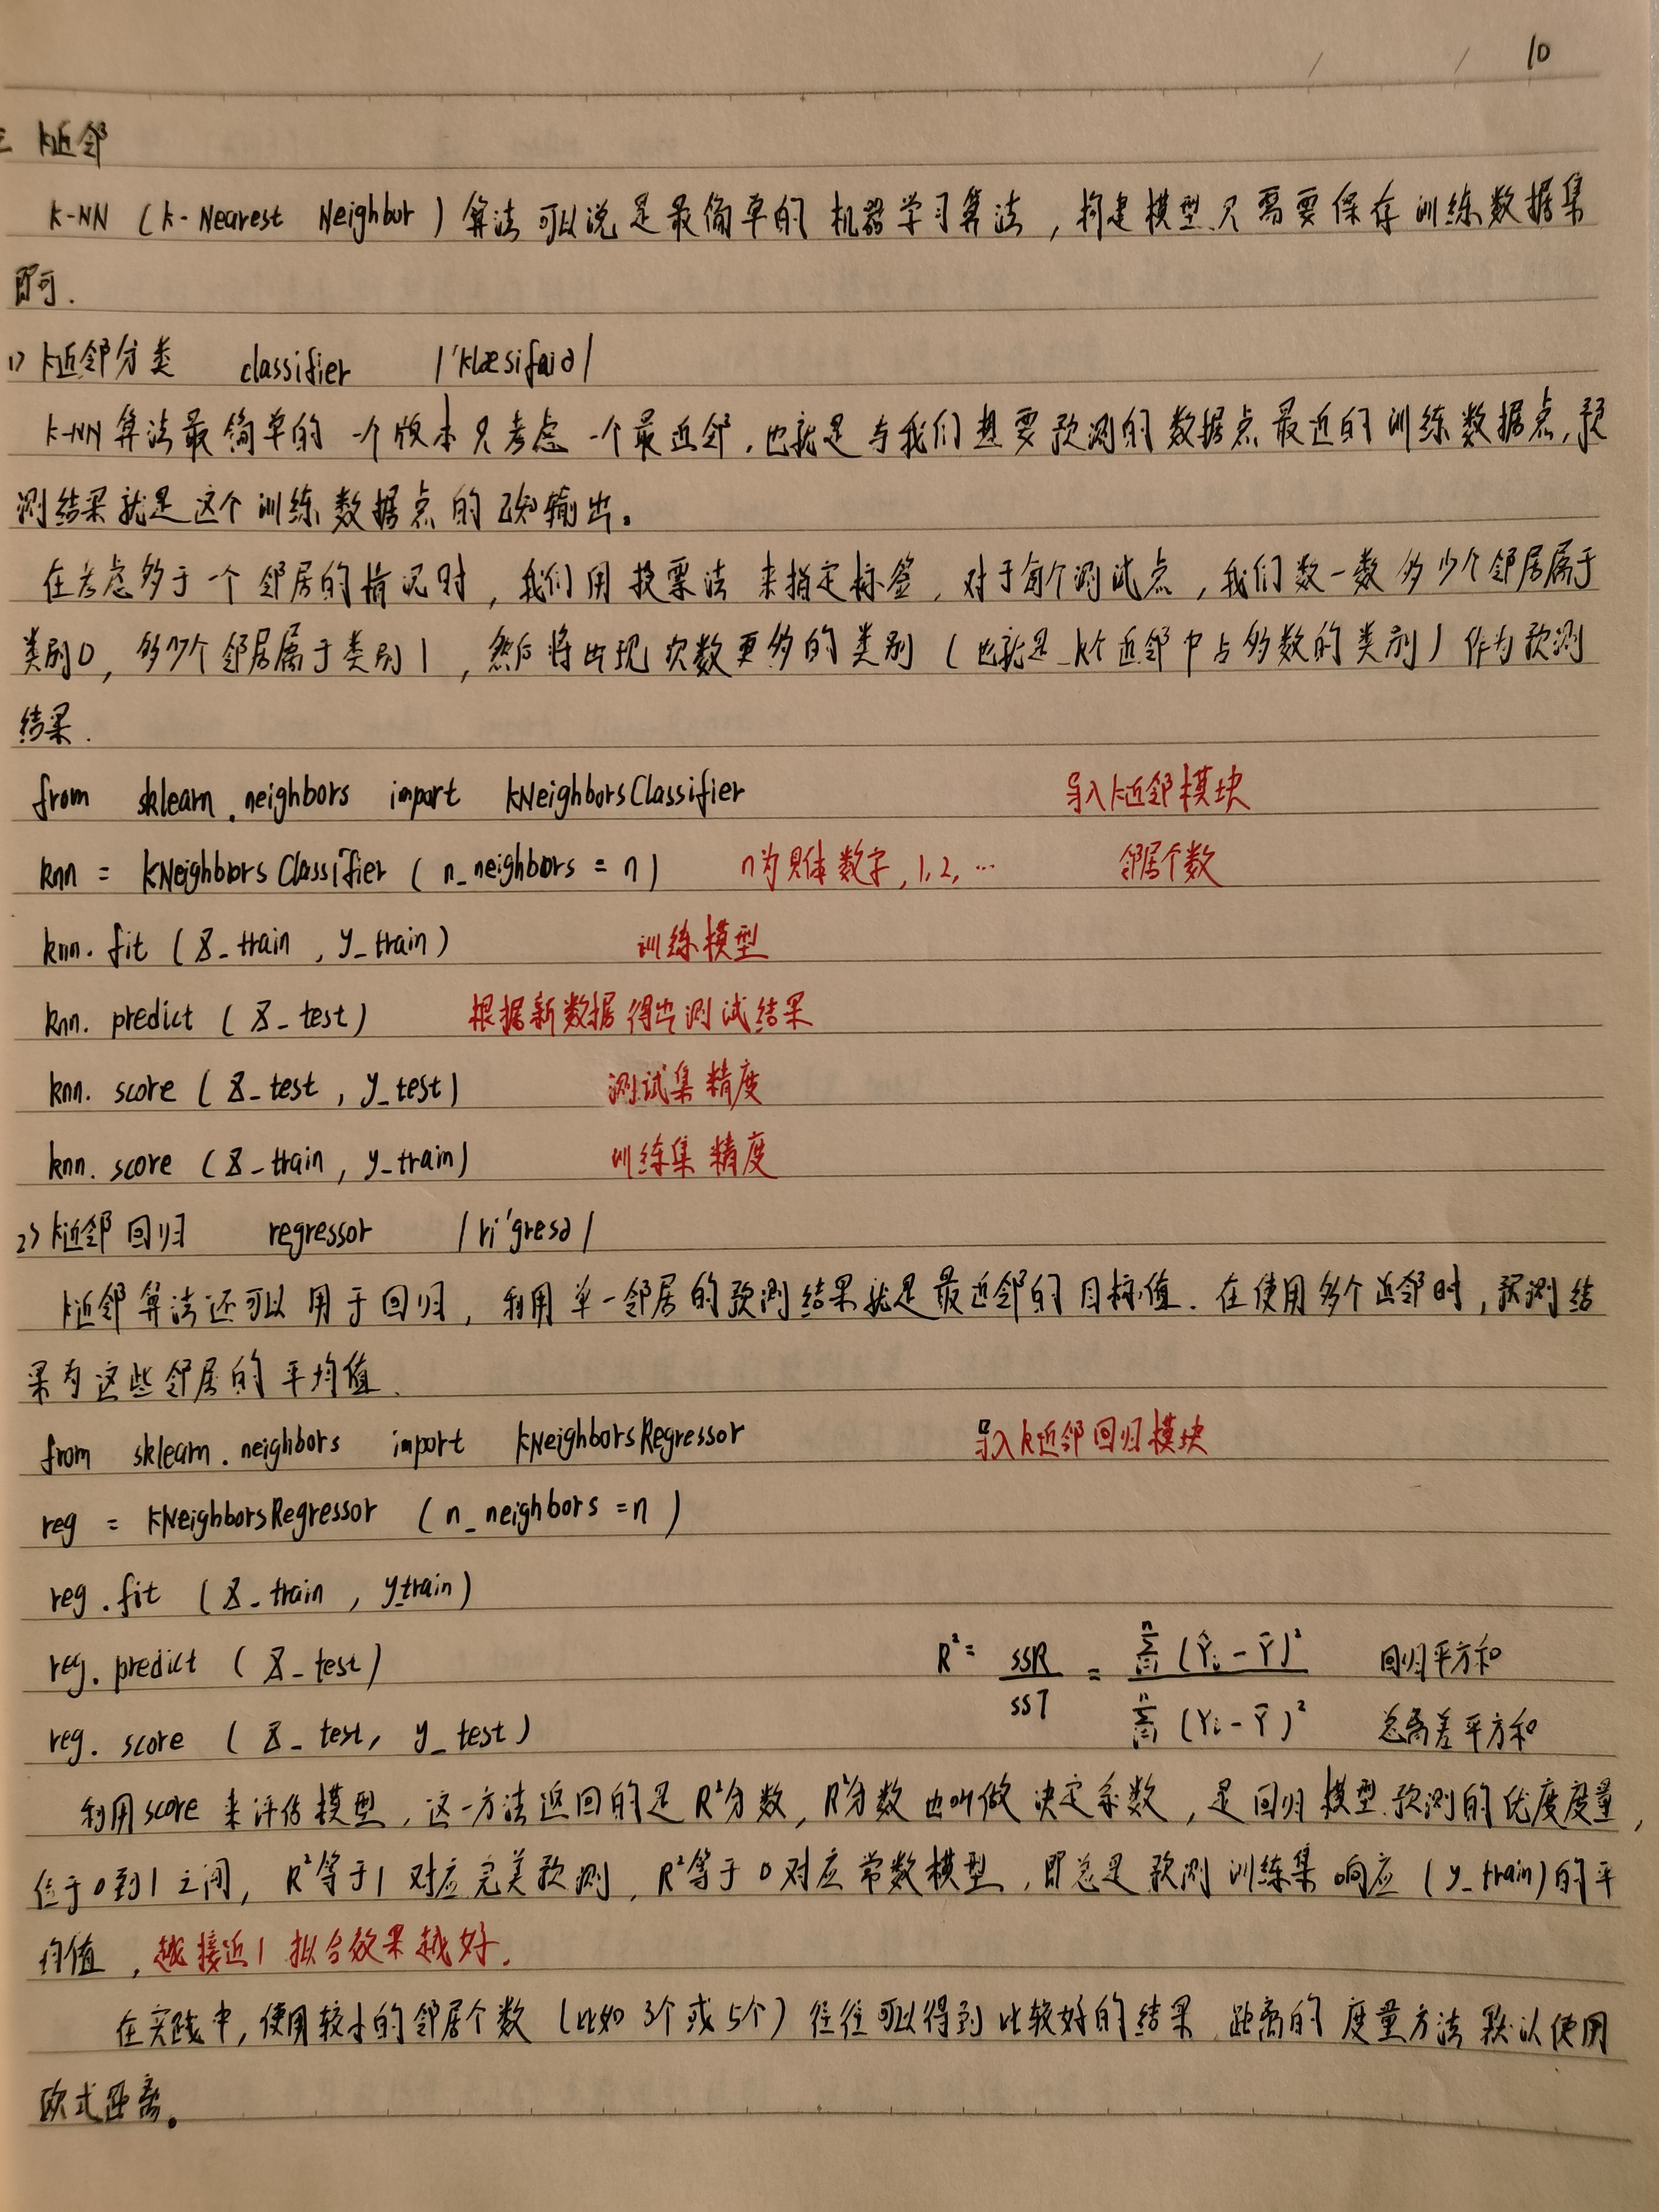 10
三 k近邻
k-NN (k-Nearest Neighbor) 算法可以说是最简单的机器学习算法，构建模型只需要保存训练数据集
即可.
1) k近邻分类 classifier /'klæsifaiə/
k-NN算法最简单的一个版本只考虑一个最近邻，也就是与我们想要预测的数据点最近的训练数据点，预
测结果就是这个训练数据点的已知输出。
在考虑多于一个邻居的情况时，我们用投票法来指定标签，对于每个测试点，我们数一数多少个邻居属于
类别0，多少个邻居属于类别1，然后将出现次数更多的类别（也就是k个近邻中占多数的类别）作为预测
结果.
from sklearn.neighbors import KNeighborsClassifier 导入k近邻模块
knn = KNeighborsClassifier (n_neighbors = n) n为具体数字,1,2,… 邻居个数
knn.fit (X_train, y_train) 训练模型
knn.predict (X_test) 根据新数据得出测试结果
knn.score (X_test, y_test) 测试集精度
knn.score (X_train, y_train) 训练集精度
2) k近邻回归 regressor /ri'gresə/
k近邻算法还可以用于回归，利用单一邻居的预测结果就是最近邻的目标值. 在使用多个近邻时，预测结
果为这些邻居的平均值.
from sklearn.neighbors import KNeighborsRegressor 导入k近邻回归模块
reg = KNeighborsRegressor (n_neighbors = n)
reg.fit (X_train, y_train)
reg.predict (X_test) R² = SSR/SST = Σⁿᵢ₌₁(Ŷᵢ - Ȳ)² / Σⁿᵢ₌₁(Yᵢ - Ȳ)² 回归平方和
reg.score (X_test, y_test) 总离差平方和
利用score来评估模型，这一方法返回的是R²分数，R²分数也叫做决定系数，是回归模型预测的优度度量，
位于0到1之间，R²等于1对应完美预测，R²等于0对应常数模型，即总是预测训练集响应(y_train)的平
均值，越接近1拟合效果越好.
在实践中，使用较小的邻居个数（比如3个或5个）往往可以得到比较好的结果，距离的度量方法默认使用
欧式距离。